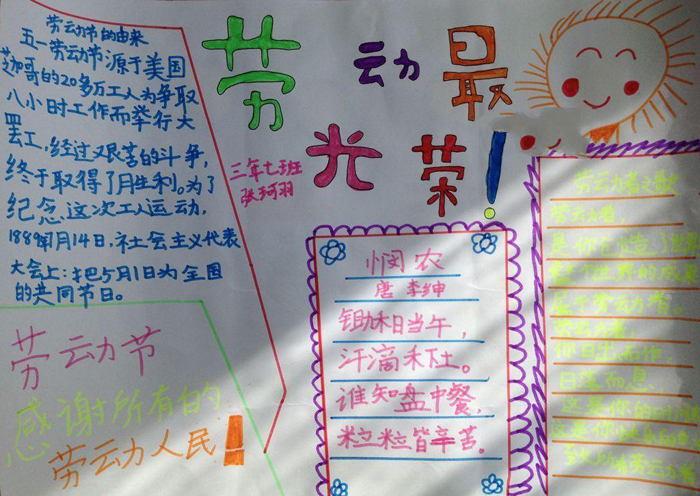 劳动最
光荣!
三年七班
张珂羽
劳动节的由来
五一劳动节源于美国
芝加哥的20多万工人为争取
八小时工作而举行大
罢工,经过艰苦的斗争,
终于取得了胜利。为了
纪念这次工人运动,
1889年7月14日,社会主义代表
大会上:把5月1日为全国
的共同节日。
劳动节
感谢所有的
劳动人民!
悯农
唐 李绅
锄禾日当午,
汗滴禾下土。
谁知盘中餐,
粒粒皆辛苦。
劳动者之歌
劳动者,
是你创造了
劳动者,
你日出而作
日落而息,
这是你的